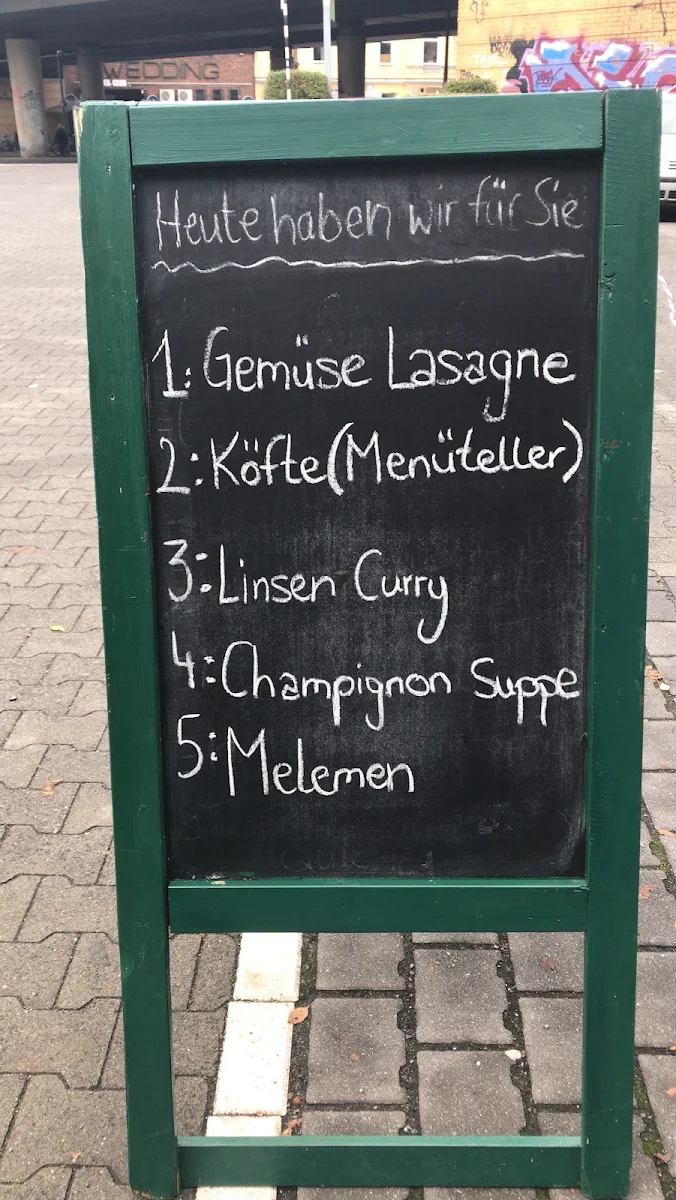 WEDDING
Heute haben wir für Sie
1: Gemüse Lasagne
2: Köfte (Menüteller)
3: Linsen Curry
4: Champignon Suppe
5: Melemen